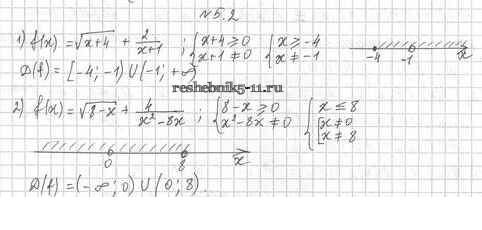 №5.2
1) f(x) = √x+4 + 2/(x+1) ; { x+4 ≥ 0 { x ≥ -4
x+1 ≠ 0 x ≠ -1
-4 -1 x
D(f) = [-4; -1) ∪ (-1; +∞)
reshebnik5-11.ru
2) f(x) = √8-x + 4/(x²-8x) ; { 8-x ≥ 0 { x ≤ 8
x²-8x ≠ 0 [ x ≠ 0
x ≠ 8
0 8 x
D(f) = (-∞; 0) ∪ (0; 8).